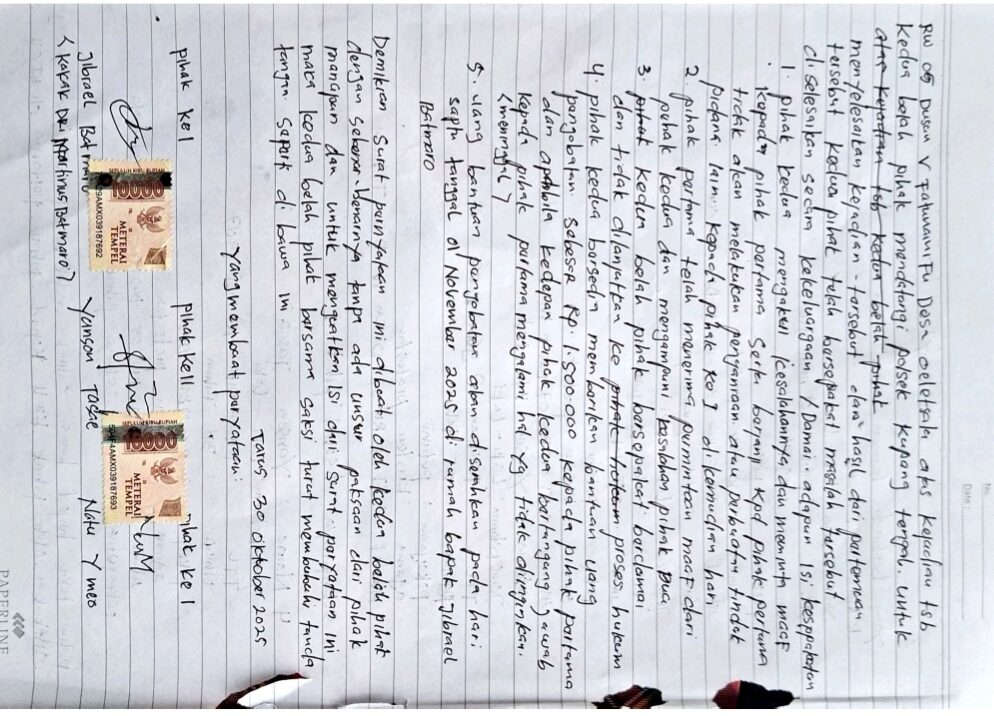 No.
Date:
RW 05 Dusun V Tatunaimfu Desa Oeletsala atas kejadian tsb
kedua belah pihak mendatangi polsek Kupang tengah untuk
atas kejadian tsb kedua belah pihak
menyelesaikan kejadian - tersebut dan hasil dari pertemuan
tersebut kedua pihak telah bersepakat masalah tersebut
di selesaikan secara kekeluargaan / Damai. adapun isi kesepakatan
1. pihak kedua mengakui kesalahannya dan meminta maaf
kepada pihak pertama serta berjanji kpd pihak pertama
tidak akan melakukan penganiaan atau perbuatan tindak
pidana lain kepada pihak ke 1 di kemudian hari
2. pihak pertama telah menerima permintaan maaf dari
pihak kedua dan mengampuni kesalahan pihak
3. pihak kedua belah pihak bersepakat berdamai
dan tidak dilanjutkan ke proses hukum
4. pihak kedua bersedia memberikan bantuan uang
pengobatan sebesar Rp. 1.500.000 kepada pihak pertama
dan apabila kedepan pihak kedua bertangung jawab
kepada pihak pertama mengalami hal yg tidak diinginkan.
(meninggal)
5. uang bantuan pengobatan akan diserahkan pada hari
saptu tanggal 01 November 2025 di rumah bapak Jibrael
Batmaro
Demikian surat pernyataan ini dibuat oleh kedua belah pihak
dengan sebenar-benarnya tanpa ada unsur paksaan dari pihak
manapun dan untuk menguatkan isi dari surat peryataan ini
maka kedua belah pihak bersama saksi turut membubuhi tanda
tangan seperti di bawa ini.
Tarus 30 Oktober 2025
yang membuat peryataan
pihak ke I pihak ke II pihak ke I
SEPULUH RIBU RUPIAH
10000
METERAI
TEMPEL
AMX039187692
SEPULUH RIBU RUPIAH
10000
METERAI
TEMPEL
AMX039187693
Jibrael Batmaro Yainson Tashe Natu Y meo
(kakak Dri Martinus Batmaro)
PAPERLINE